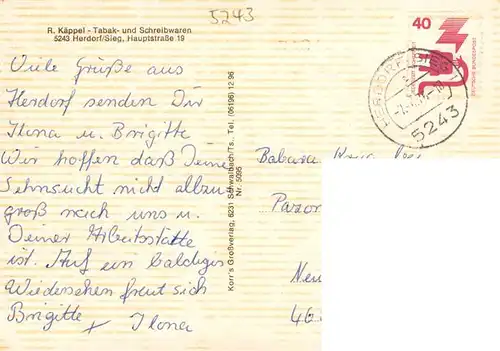 5243
R. Käppel - Tabak- und Schreibwaren
5243 Herdorf/Sieg, Hauptstraße 19
Viele Grüße aus
Herdorf senden Dir
Ilona u. Brigitte
Wir hoffen daß Deine
Sehnsucht nicht allzu
groß nach uns u.
Deiner Arbeitsstätte
ist. Auf ein baldiges
Wiedersehen freut sich
Brigitte + Ilona
Korr's Großverlag, 6231 Schwalbach/Ts., Tel. (06196) 12 96
Nr. 5095
40
DEUTSCHE BUNDESPOST
HERDORF (SIEG)
5243